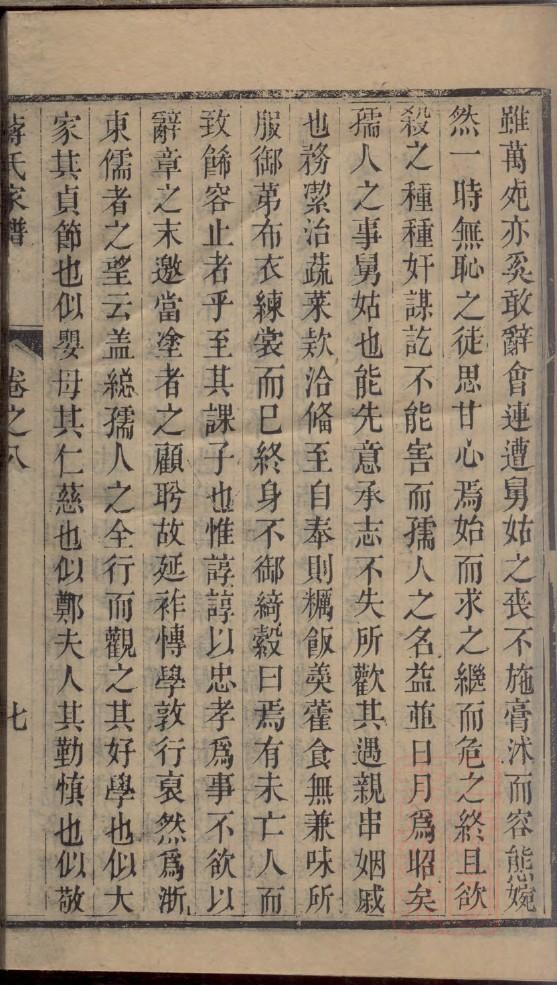 雖萬死亦奚敢辭會連遭舅姑之喪不施膏沐而容態婉
然一時無恥之徒思甘心焉始而求之繼而危之終且欲
殺之種種奸謀訖不能害而孺人之名益並日月爲昭矣
孺人之事舅姑也能先意承志不失所歡其遇親串姻戚
也務潔治蔬菜欵洽備至自奉則糲飯羮藿食無兼味所
服御苐布衣練裳而已終身不御綺縠曰焉有未亡人而
致餙容止者乎至其課子也惟諄諄以忠孝爲事不欲以
辭章之末邀當塗者之顧聆故延祚慱學敦行裒然爲浙
東儒者之望云盖緫孺人之全行而觀之其好學也似大
家其貞節也似嬰母其仁慈也似鄭夫人其勤慎也似敬
蔣氏家譜
卷之八
七